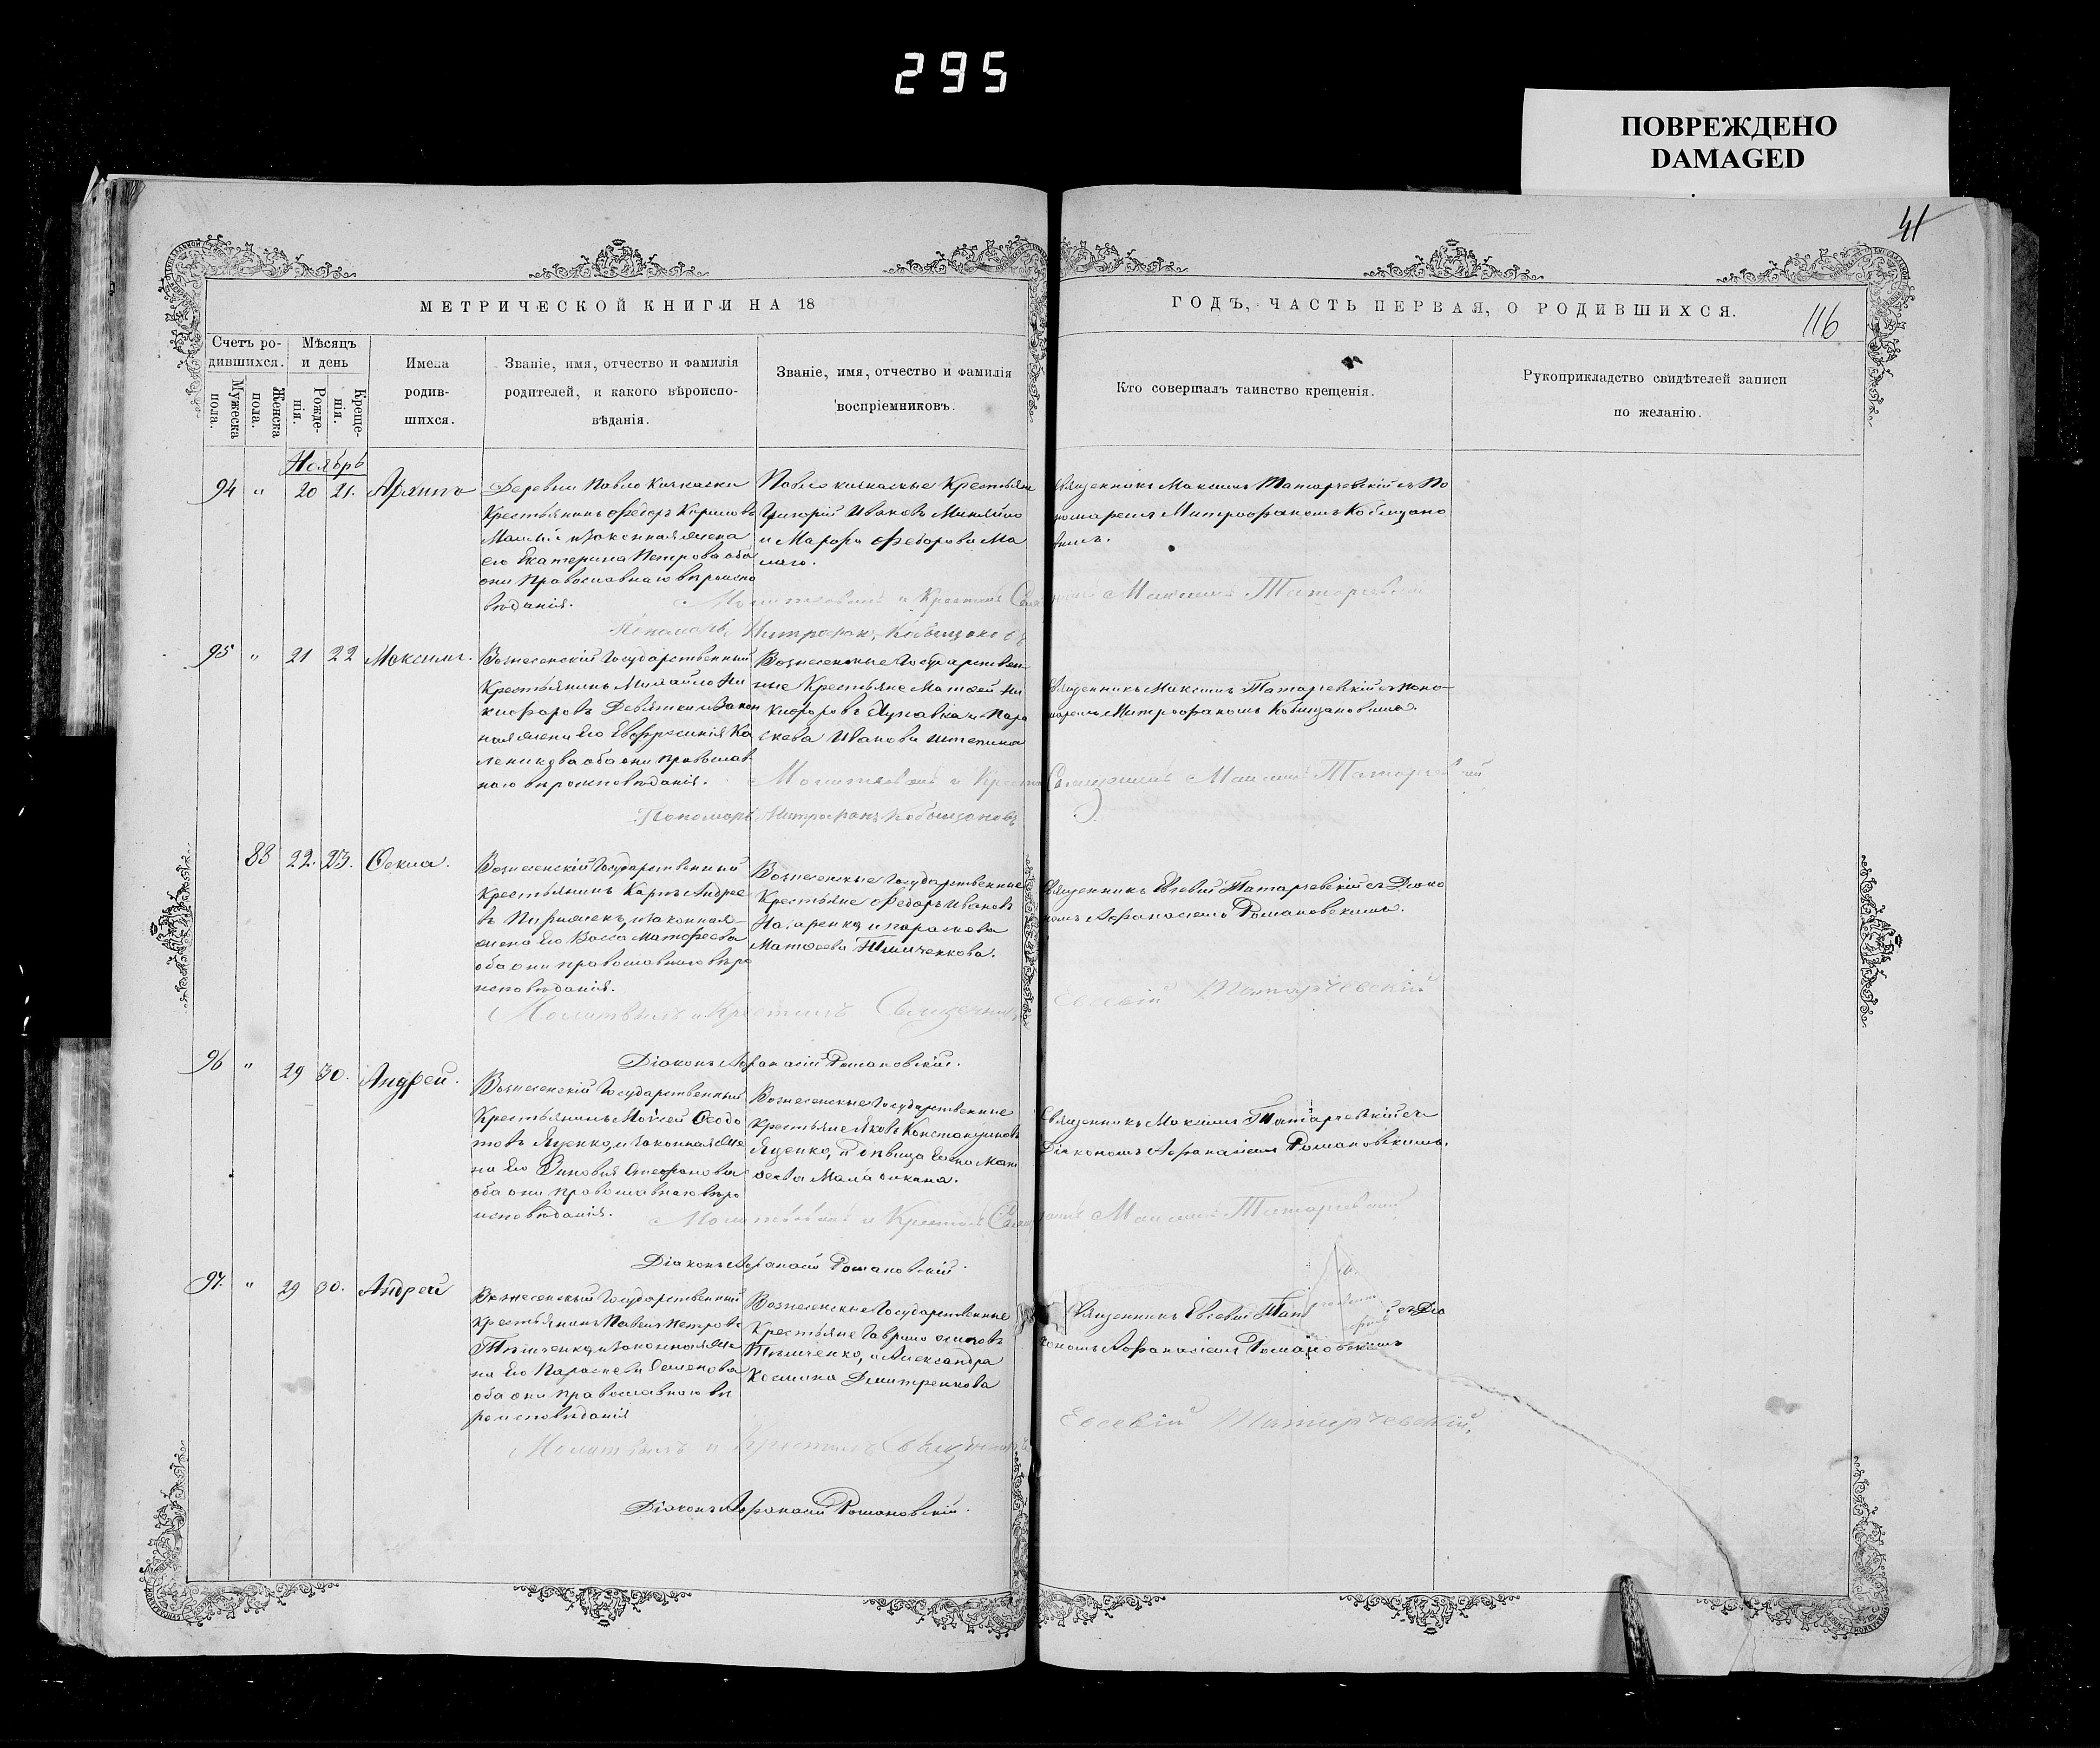 295
ПОВРЕЖДЕНО
DAMAGED
41
116
МЕТРИЧЕСКОЙ КНИГИ НА 18
ГОДЪ, ЧАСТЬ ПЕРВАЯ, О РОДИВШИХСЯ.
Счетъ ро-
дившихся.
Мужеска
пола.
Женска
пола.
Мѣсяцъ
и день
Рожде-
нія.
Креще-
нія.
Имена
родив-
шихся.
Званіе, имя, отчество и фамилія
родителей, и какого вѣроиспо-
вѣданія.
Званіе, имя, отчество и фамилія
воспріемниковъ.
Кто совершалъ таинство крещенія.
Рукоприкладство свидѣтелей записи
по желанію.
Ноябрь
94 " 20 21. Архипъ
Деревни Павло
Крестьянинъ Федоръ Кириловъ
Малый и законная жена
его Екатерина Петрова оба
они православнаго вѣроиспо
вѣданія.
Крестьяне
Григорій Ивановъ
и Марфа Федорова Ма
лаго.
Священникъ Максимъ Татарчевскій съ По
номаремъ Митрофаномъ
Молитвовалъ и Крестилъ Священникъ Максимъ Татарчевскій
Пономарь Митрофанъ
95 " 21 22 Максимъ.
Вознесенскій Государственный
Крестьянинъ Михайло Ни
кифоровъ и закон
ная жена его Евфросинія Ка
леникова оба они православ
наго вѣроисповѣданія.
Вознесенские Государствен-
ные Крестьяне Матвей Ни
кифоровъ и Пара
скева Иванова
Священникъ Максимъ Татарчевскій съ Поно-
маремъ Митрофаномъ
Молитвовалъ и Крестилъ Священникъ Максимъ Татарчевскій
Пономарь Митрофанъ
83 22. 23. Ѳекла.
Вознесенскій Государственный
Крестьянинъ Карпъ Андрее
въ и законная
жена его Васса Матфеева
оба они православнаго вѣро
исповѣданія.
Вознесенские Государственные
Крестьяне Федоръ Ивановъ
Назаренко и Параскева
Матвеева
Священникъ Евсевій Татарчевскій съ Діако
номъ Афанасіемъ Романовскимъ.
Молитвилъ и Крестилъ Священникъ Евсевій Татарчевскій
Діаконъ Афанасій Романовскій.
96 " 29 30. Андрей.
Вознесенскій Государственный
Крестьянинъ Мойсей Ѳеодо
товъ Яценко, и законная же
на его Зиновія Стефанова
оба они православнаго вѣро
исповѣданія.
Вознесенские Государственные
Крестьяне Яковъ Константиновъ
Яценко, и дѣвица
Священникъ Максимъ Татарчевскій съ
Діакономъ Афанасіемъ Романовскимъ.
Молитвовалъ и Крестилъ Священникъ Максимъ Татарчевскій
Діаконъ Афанасій Романовскій.
97. " 29 30. Андрей
Вознесенскій Государственный
Крестьянинъ Павелъ Петровъ
и законная же
на его Параскева Семенова
оба они православнаго вѣ
роисповѣданія
Вознесенские Государственные
Крестьяне Гаврило Осиповъ
и Александра
Космина Дмитренкова
Священникъ Евсевій съ Діа
кономъ Афанасіемъ Романовскимъ
Молитвилъ и Крестилъ Священникъ Евсевій Татарчевскій,
Діаконъ Афанасій Романовскій.